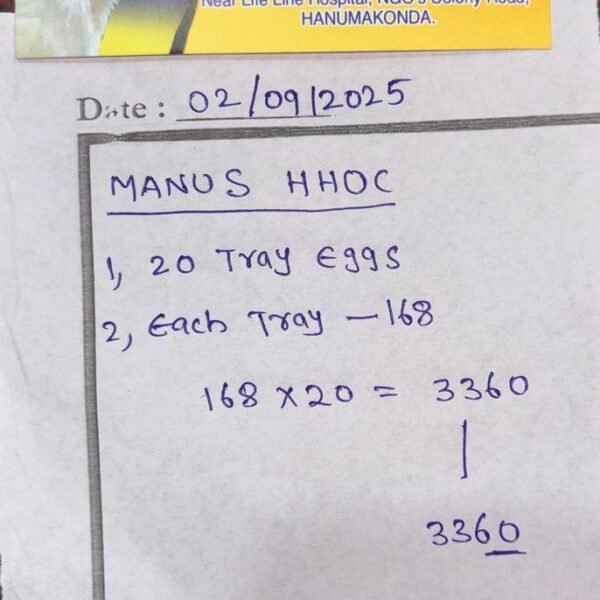 Near Life Line Hospital, NGO's Colony Road,
HANUMAKONDA.
Date : 02/09/2025
MANUS HHOC
1, 20 Tray Eggs
2, Each Tray - 168
168 x 20 = 3360
3360